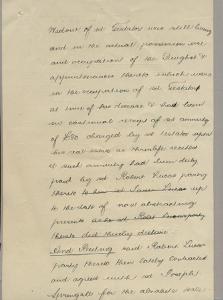 Widow of sd Testator was still living
and in the actual possession use
and occupation of the Dwghse &
appurtenances thereto which were
in the occupation of sd Testator
at time of his decease & had been
in continual receipt of sd annuity
of £20 charged by sd testator upon
his real estate as therein recited
& such annuity had been duly
paid by sd Robert Lucas party
thereto to her at James Lucas up
to the date of now abstracting
presents as sd
thereto did thereby declare
And Reciting said Robert Lucas
party thereto then lately contracted
and agreed with sd Joseph
Springall for the absolute sale